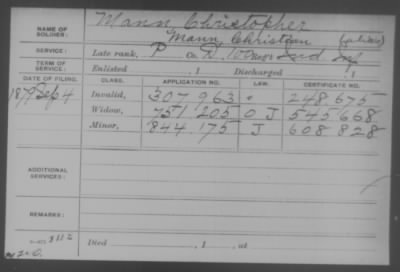 NAME OF SOLDIER: Mann Christopher
Mann Christian (alias)
SERVICE: Late rank, P Co. D, 100 Reg't Ind. Inf
TERM OF SERVICE: Enlisted , 1 Discharged , 1
DATE OF FILING. CLASS. APPLICATION NO. LAW. CERTIFICATE NO.
1879 Sep 4 Invalid, 307 963 248 675
Widow, 751 205 O J 545 668
Minor, 844 175 J 608 828
ADDITIONAL SERVICES:
REMARKS:
8112
Died , 1 , at